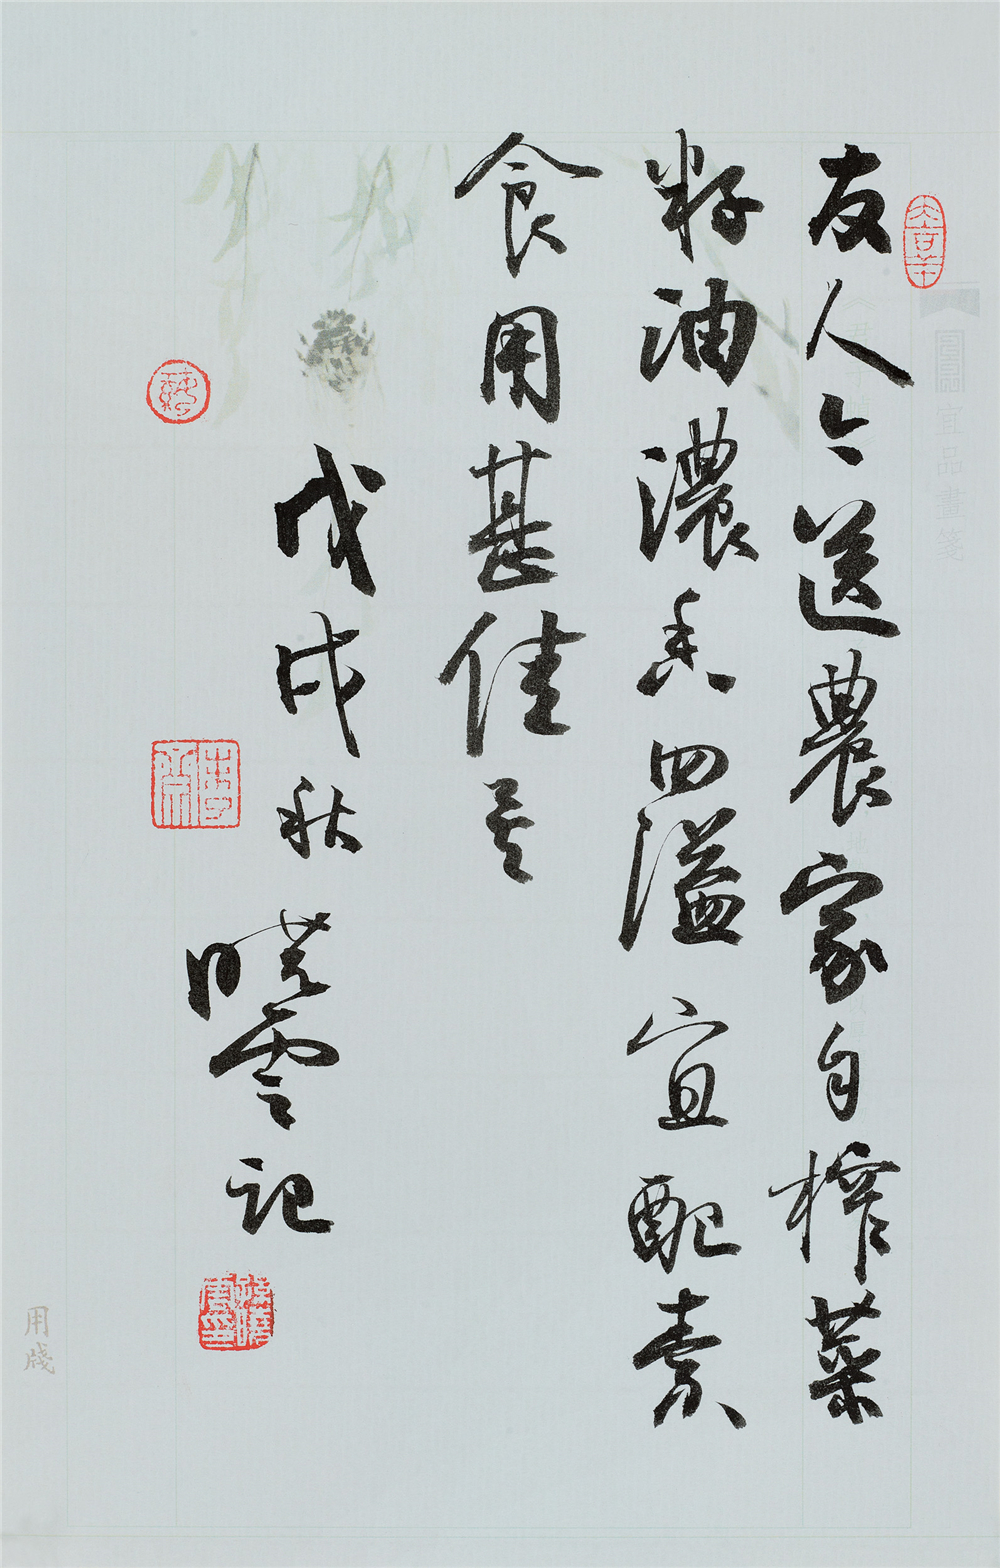 友人今送農家自榨菜
籽油濃香四溢宜配素
食用甚佳矣
戊戌秋曉雲記
宜品畫箋
用牋